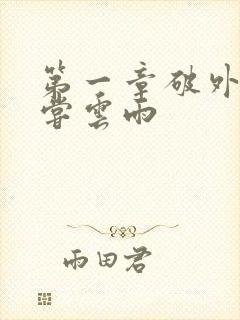 第一章破外
嘗雲雨
雨田君